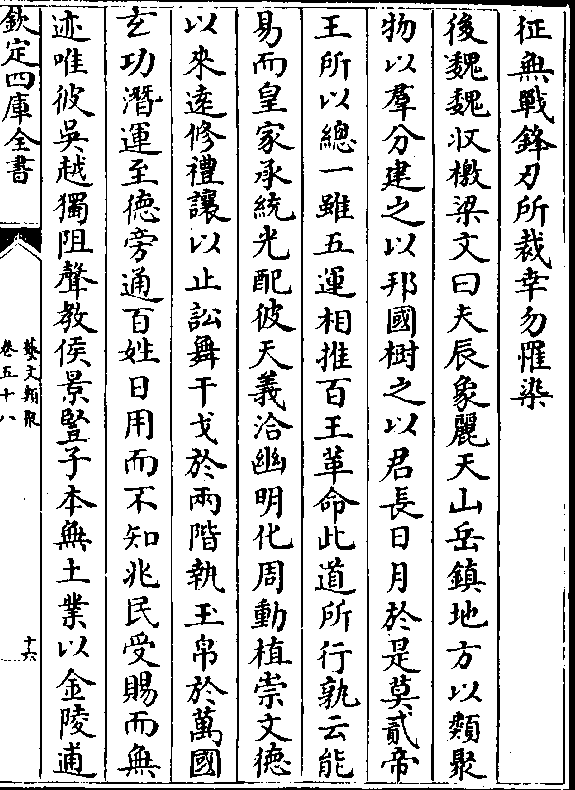 征無戰鋒刃所裁幸勿罹染
後魏魏收檄梁文曰夫辰象麗天山岳鎮地方以類聚
物以羣分建之以邦國樹之以君長日月於是莫貳帝
王所以總一雖五運相推百王革命此道所行孰云能
易而皇家承統光配彼天義洽幽明化周動植崇文德
以來遠修禮讓以止訟舞干戈於兩階執玉帛於萬國
玄功潛運至德旁通百姓日用而不知兆民受賜而無
迹唯彼吳越獨阻聲教侯景豎子本無土業以金陵逋
欽定四庫全書
藝文類聚
卷五十八
十六